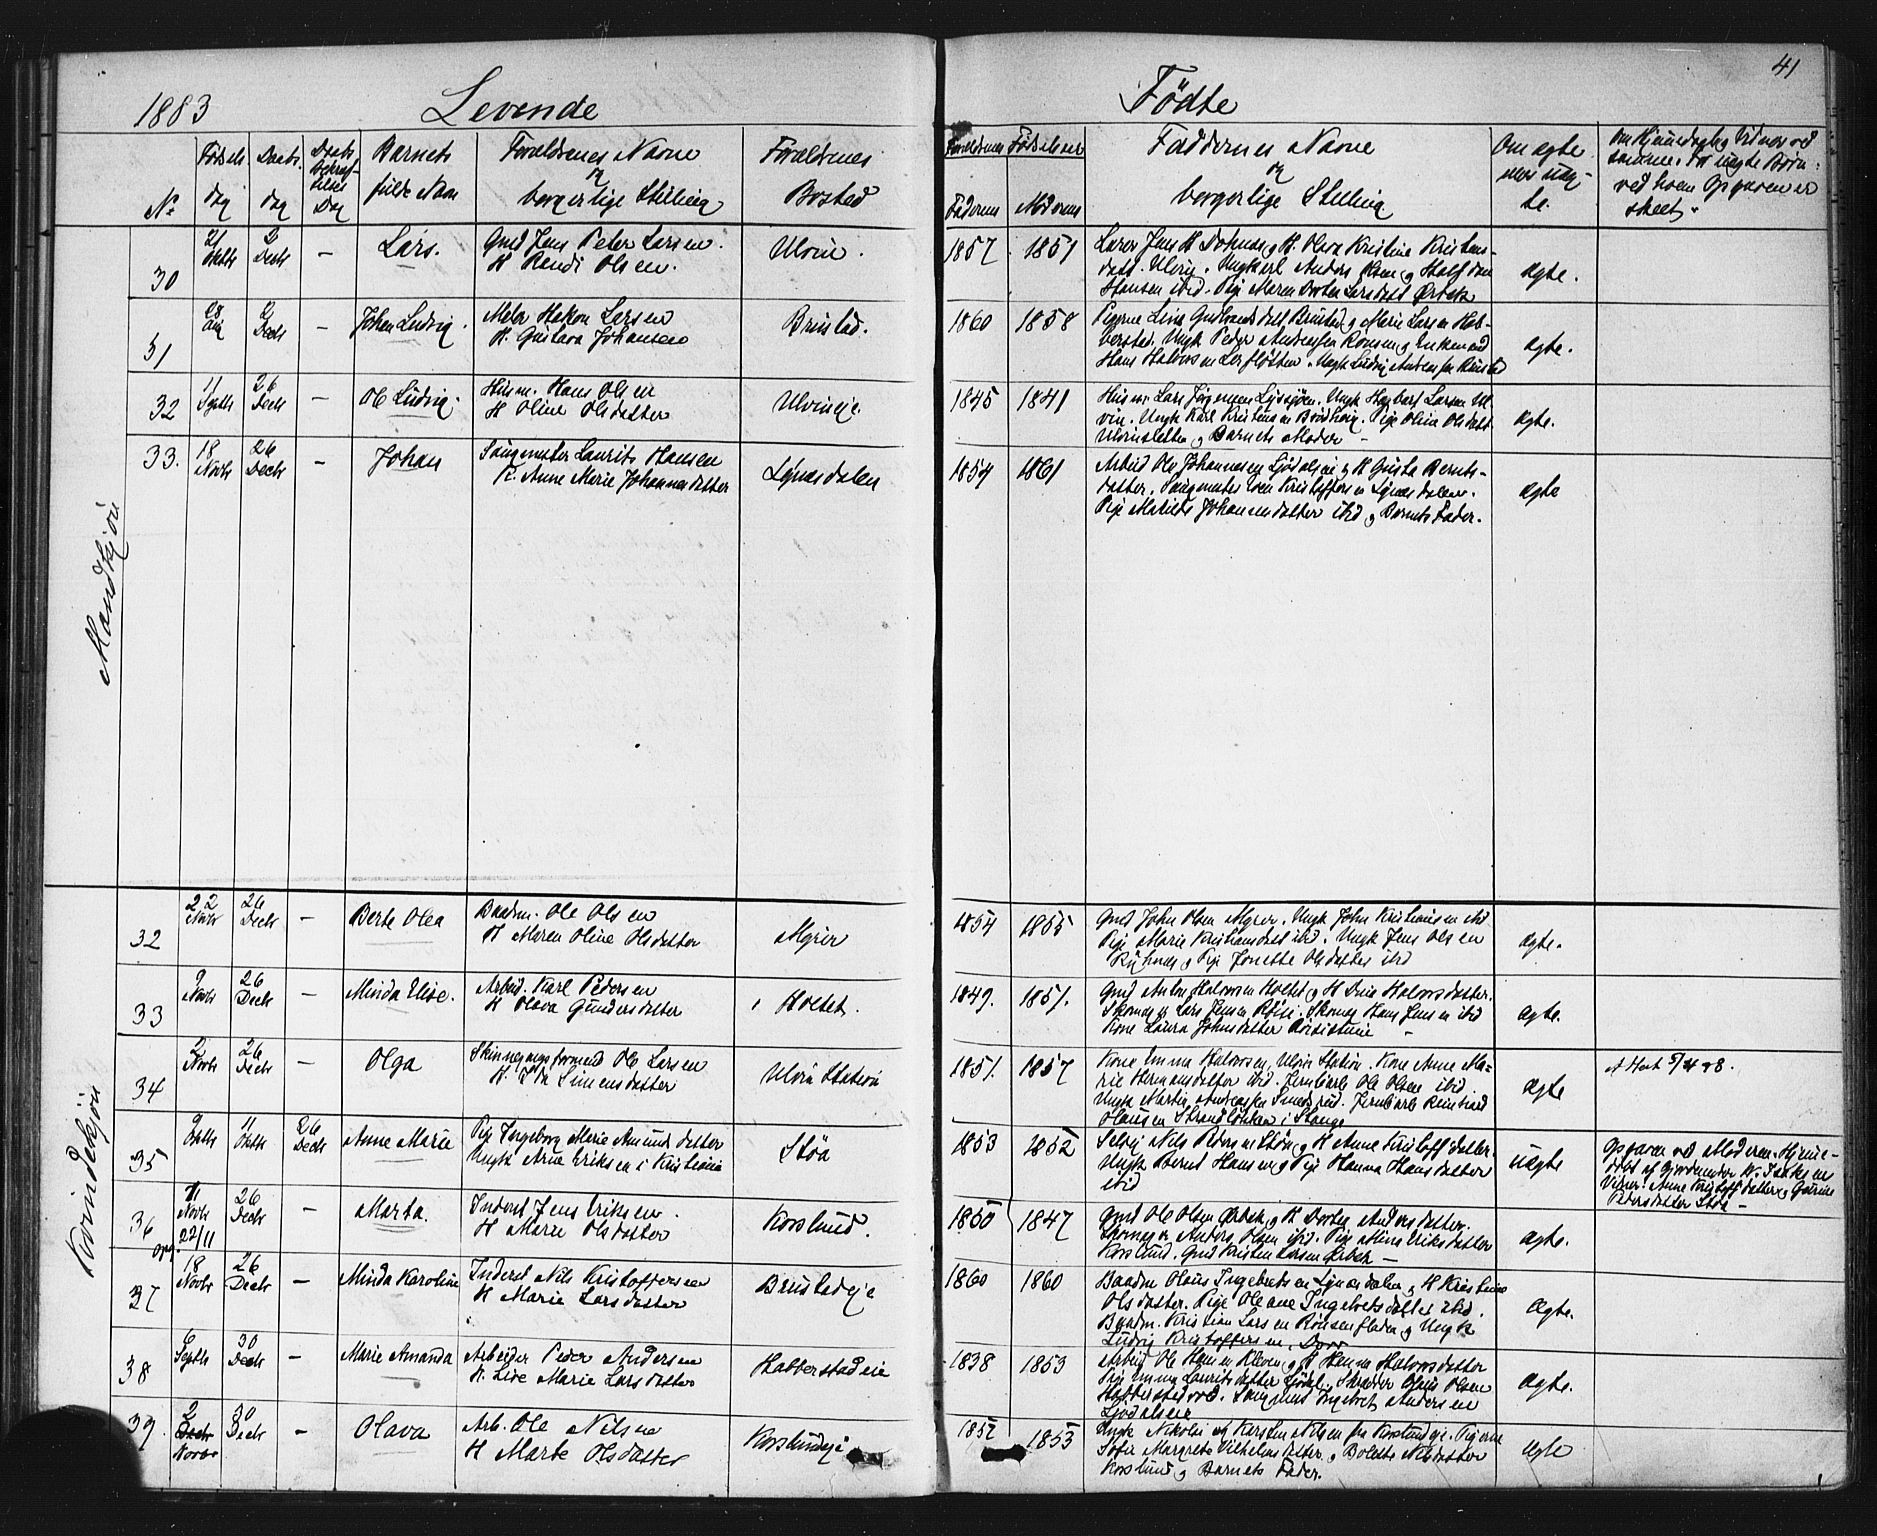 41
1883 Levende Fødte
No
Fødsels dag
Daabs dag
Daabs Bekræftelses Dag
Barnets fulde Navn
Forældrenes Navne og borgerlige Stilling
Forældrenes Bosted
Forældrenes Fødselsaar
Faderens
Moderens
Faddernes Navne og borgerlige Stilling
Om ægte eller uægte
Om Hjemmedaab
Vidner ved samme. For uægte Børn: ved hvem Opgaven er skeet.
Mandkjøn
30
21 Oktbr
2 Decbr
–
Lars.
Gmd Jens Peter Larsen.
H Randi Olsen.
Ulvin.
1857
1851
Lærer Jens H Dahnæs, H. Olva Kristine Kristens-
datt. Ulvin. Ungkarl Anders Olsen og Halfdan
Hansen ibid. Pige Maren Dorthea Larsdatt Ørbæk
ægte.
31
28 Aug
2 Decb
–
Johan Ludvig.
Møler Hakon Larsen
H. Gustava Johansen
Brustad.
1860
1858
Pigerne Lina Gulbrandsdatt Brustad og Marie Larsen Hab-
berstad. Ungk Peder Andreassen Rønsen og Enkemand
Hans Halvorsen
Ungk Ludvig Andreassen Brustad
ægte.
32
11 Septb
26 Decb
–
Ole Ludvig.
Husm. Hans Olsen
H Oline Olsdatter
Ulvineje
1845
1841
Husm. Lars Jørgensen Ungk Hagbart Larsen Ul-
vin. Ungk Karl Kristensen Pige Oline Olsdatt.
Ulvinsletten og Barnets Moder –
ægte.
33.
18 Novbr
26 Decbr
–
Johan
Saugmester Laurits Hansen
K. Anne Marie Johannesdatter
Lynæsdalen
1854
1861
Arbeid Ole Johannesen Fjødalseie og H Gusta Bernts-
datter. Saugmester Iver Kristoffersen Lynæsdalen.
Pige Matilde Johansendatter ibid og Barnets Fader.
ægte
Kvindekjøn
32
22 Novbr
26 Decbr
–
Berte Olea
Baadm. Ole Olsen
H Maren Oline Olsdatter
Myrer
1854
1855
Gmd John Olsen Myrer. Ungk John Kristiansen ibid
Pige Marie Kristiansdatt ibid. Ungk Jens Olsen
og Pige Jonette Olsdatter ibid
ægte.
33
9 Novbr
26 Decbr
–
Minda Elise.
Arbeid. Karl Pedersen
H Olava Gundersdatter
Holtet.
1849.
1851.
Gmd Anton Halvorsen Holtet og H Dina Halvorsdatter.
Skomager Lars Jensen Røise. Skomag Hans Jensen ibid
Kone Laura Johnsdatter Røisestuen –
ægte.
34
2 Novbr
26 Decbr
–
Olga
Skinnegangsformand Ole Larsen
H. Ida Simensdatter
Ulvin Station
1851.
1857
Kone Emma Halvorsen, Ulvin Station. Kone Anne Ma-
rie Hermansdatter ibid. Jernbarb Ole Olsen ibid.
Ungk Martin Andreassen Smedsrud. Jernbarb Reinhard
Olaus en Strandløkken i Stange
ægte
Attest 5/4 28.
35
9 Oktb
11 Oktb
26 Decbr
Anne Marie
Pige Ingeborg Marie Amundsdatter
Ungk Arne Eriksen i Kristiania
Støa
1853
1852
Selvej Nils Pedersen Støa og H Anne Kristoffsdatter.
Ungk Bernt Hansen og Pige Hanna Hansdatter
ibid
uægte
Opgaven ved Moderen. Hjemme-
døbt af Gjordemoder K. Isaksen
Vidner: Anne Kristoffsdatter og Gurine
Pedersdatter Støa –
36
11 Novbr
22/11
26 Decbr
–
Marta.
Inderst Jens Eriksen.
H Marie Olsdatter
Korslund.
1850
1847
Gmd Ole Olsen Ørbæk og H Dorthea Andersdatter.
Skomager Anders Olsen ibid. Pige Mina Eriksdatter
Korslund. Gmd Kristen Larsen Ørbæk –
ægte.
37
opg.
18 Novbr
26 Decbr
–
Minda Karoline
Inderst Nils Kristoffersen
H Marie Larsdatter
Brustadeje
1860
1860
Baadm Olaus Ingebretsen Lynæsdalen og H Kristine
Olsdatter. Pige Oleane Ingebretsdatter ibid.
Baadm. Kristian Larsen Rønsenfladen og Ungk
Ludvig Kristoffersen,
ægte.
38
6 Septb
30 Decbr
–
Marie Amanda
Arbeider Peder Andersen
H. Live Marie Larsdatter
Habberstadeie
1838
1853
Arbeid Ole Hansen Kleven og H Hanna Halvorsdatter
Pige Emma Lauritsdatter Fjødal. Skræder Olaus Olsen
Habberstadvold. Saugmest Ingebret Andersen
Fjødalseie
ægte.
39.
2 Decbr Novbr
30 Decbr
–
Olava
Arb. Ole Nilsen
H Marte Olsdatter
Korslundeje
1852
1853
Ungk Nikolai og Karsten Nilsen fra Korslundeje. Pigerne
Sofie Margrete Vilhelmsdatter og Bolette Nilsdatter
Korslund og Barnets Fader.
ægte